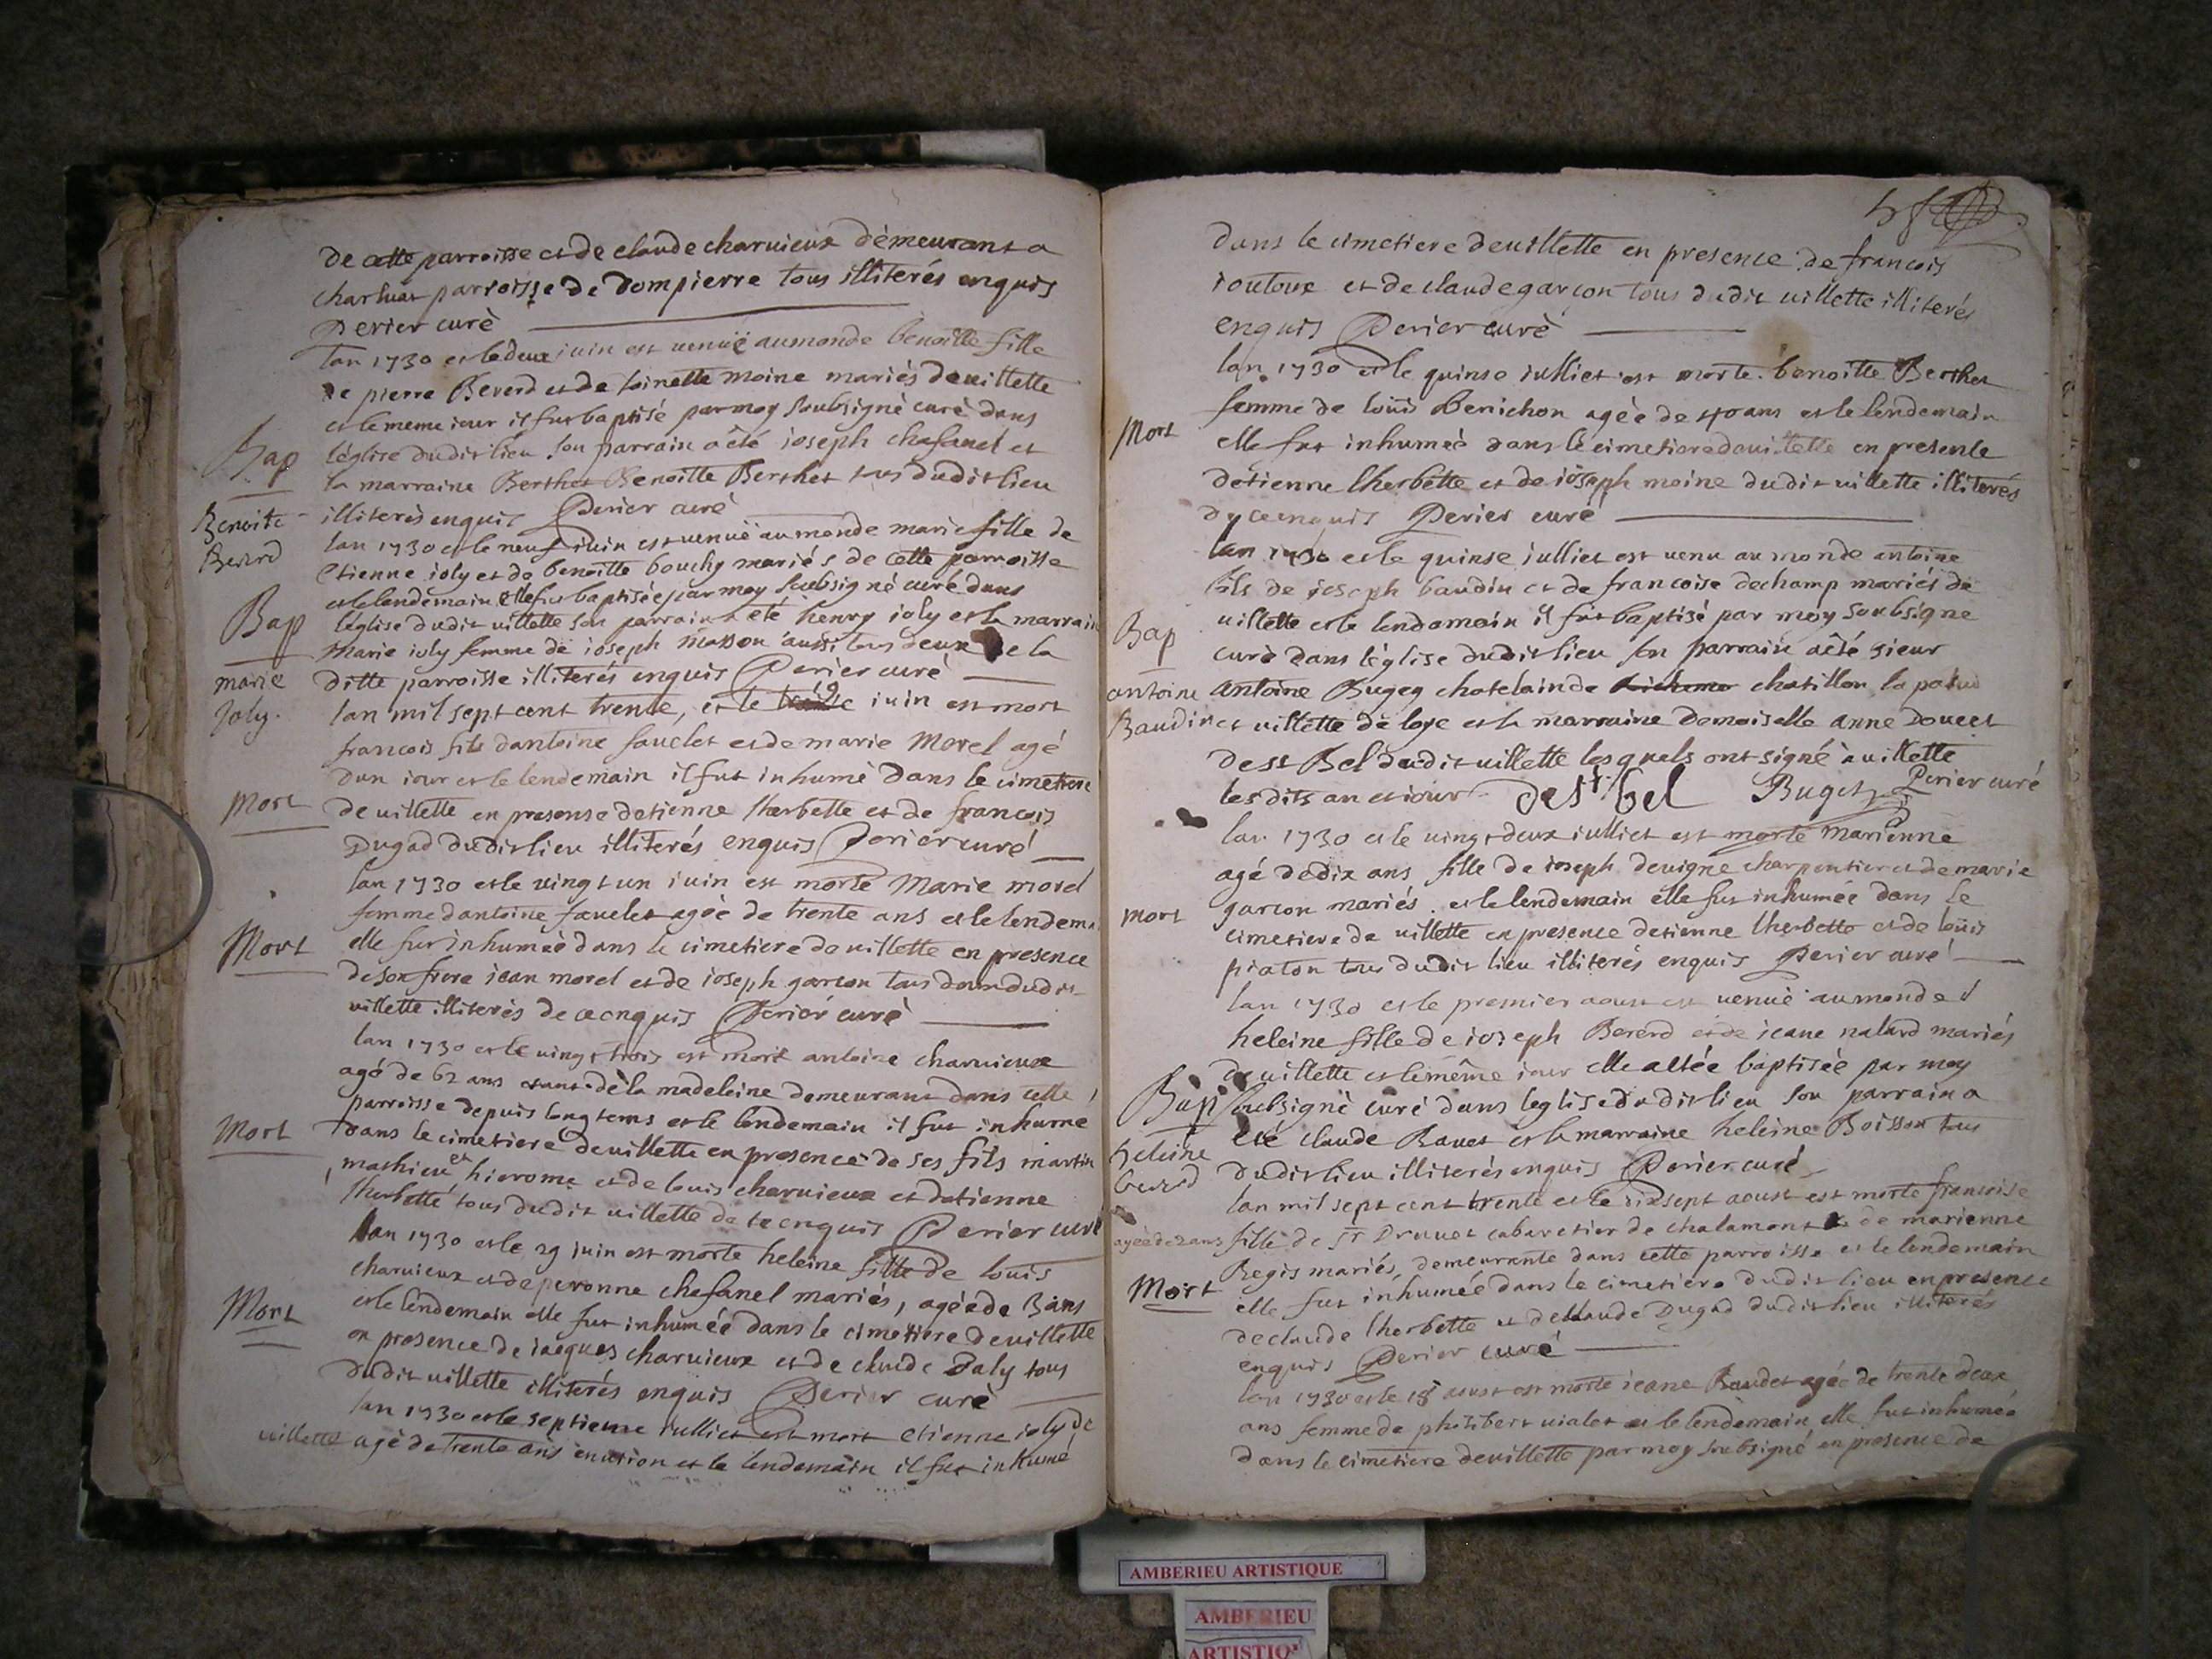 de cette parroisse et de claude charuieux demeurant a
parroisse de Dompierre tous illiterés enquis
Perier curè
lan 1730 et le deux iuin est uenuë au monde benoitte fille
de pierre Beverd et de toinette moine mariés de uillette
et le meme iour il fut baptisé par moy soubsigné curè dans
léglise dudit lieu son parrain a été ioseph chafanel et
Bap
la marraine Berthet Benoitte Berthet tous dudit lieu
Benoite
Berard
illiterés enquis Perier curè
lan 1730 et le neuf iuin est uenuë au monde marie fille de
etienne ioly et de benoitte bouchy mariés de cette parroisse
et le lendemain elle fut baptisée par moy soubsigné curè dans
Bap
léglise dudit uillette son parrain a été henry ioly et la marrain
marie
Joly
marie ioly femme de ioseph masson aussi tous deux de la
ditte parroisse illiterés enquis Perier curè
lan mil sept cent trente, et le iuin est mort
francois fils dantoine fauelet et de marie Morel agé
dun iour et le lendemain il fut inhumè dans le cimetiere
Mort
de uillette en presense detienne lherbette et de francois
Dugad dudit lieu illiterés enquis Perier curé
lan 1730 et le uingt un iuin est morte Marie morel
femme dantoine fauelet agée de trente ans et le lendema
Mort
elle fut inhumeé dans le cimetiere de uillette en presence
de son frere iean morel et de ioseph garcon tous dudit
uillette illiterés de ce enquis Perier curè
lan 1730 et le uingt trois est mort antoine charuieux
agé de 62 ans de la madeleine demeurant dans cette
parroisse depuis long tems et le lendemain il fut inhumé
Mort
dans le cimetiere de uillette en presence de ses fils martin
mathieu et hierome et de louis charuieux et detienne
lherbette tous dudit uillette de ce enquis Perier curé
lan 1730 et le 29 iuin est morte heleine fille de louis
charuieux et de peronne chafanel mariés, agée de 3 ans
Mort
et le lendemain elle fut inhumée dans le cimetiere de uillette
en presence de iacques charuieux et de claude Daly tous
dudit uillette illiterés enquis Perier curè
lan 1730 et le septieme iulliet est mort etienne ioly de
uillette agè de trente ans enuiron et le lendemain il fut inhumé
dans le cimetiere de uillette en presence de francois
ioutoux et de claude garcon tous dudit uillette illiterés
enquis Perier curè
lan 1730 et le quinse iulliet est morte benoitte Berthet
femme de loüis Benichon agèe de 40 ans et le lendemain
Mort
elle fut inhumeè dans le cimetiere de uillette en presente
detienne lherbette et de ioseph moine dudit uillette illiterés
de ce enquis Perier curé
lan 1730 et le quinse iulliet est uenu au monde antoine
fils de ioseph baudin et de francoise dechamp mariés de
uillette et le lendemain il fut baptisé par moy soubsigne
Bap
curè dans léglise dudit lieu son parrain a été sieur
antoine
Baudin
antoine Bugey chatelain de chatillon la palui
et uillette de loye et la marraine demoiselle anne Doucet
dest Bel dudit uillette lesquels ont signé a uillette
lesdits an et iour dest bel Buget Perier curé
lan 1730 et le uingt deux iulliet est morte marienne
agé de dix ans fille de ioseph deuigne charpentier et de marie
Mort
garcon mariés et le lendemain elle fut inhumée dans le
cimetiere de uillette en presence detienne lherbette et de loüis
piaton tous dudit lieu illiterés enquis Perier curé
lan 1730 et le premier aoust est uenuè au monde
heleine fille de ioseph Bererd et de ieane nalard mariés
de uillette et le même iour elle a étée baptisée par moy
Bap
soubsigné curé dans leglise dudit lieu son parrain a
eté claude Rauet et la marraine heleine Boisson tous
heleine
berard
dudit lieu illiterés enquis Perier curé
lan mil sept cent trente et le dixsept aoust est morte francoise
agée de 2 ans
fille de Sr Drouet cabaretier de chalamont de marienne
Regis mariés, demeurante dans cette parroisse et le lendemain
Mort
elle fut inhumée dans le cimetiere dudit lieu en presence
de claude lherbette et de claude Dugad dudit lieu illiterés
enquis Perier curé
lan 1730 et le 18 aoust est morte ieane Baudet agée de trente deux
ans femme de philibert uialet et le lendemain elle fut inhumée
dans le cimetiere de uillette par moy soubsigné en presence de
AMBERIEU ARTISTIQUE
AMBERIEU
ARTISTIQ